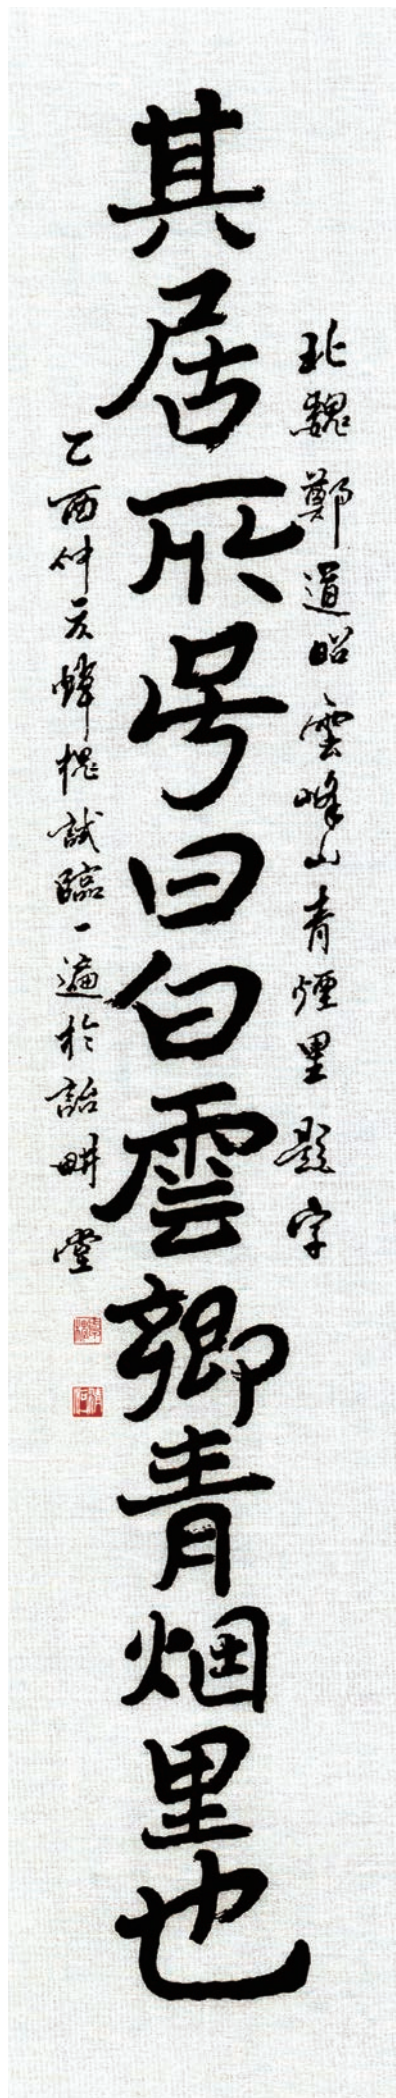 北魏鄭道昭雲峰山青煙里題字
其居所号曰白雲鄉青烟里也
乙酉仲夏韓槐試臨一遍於詒畊堂